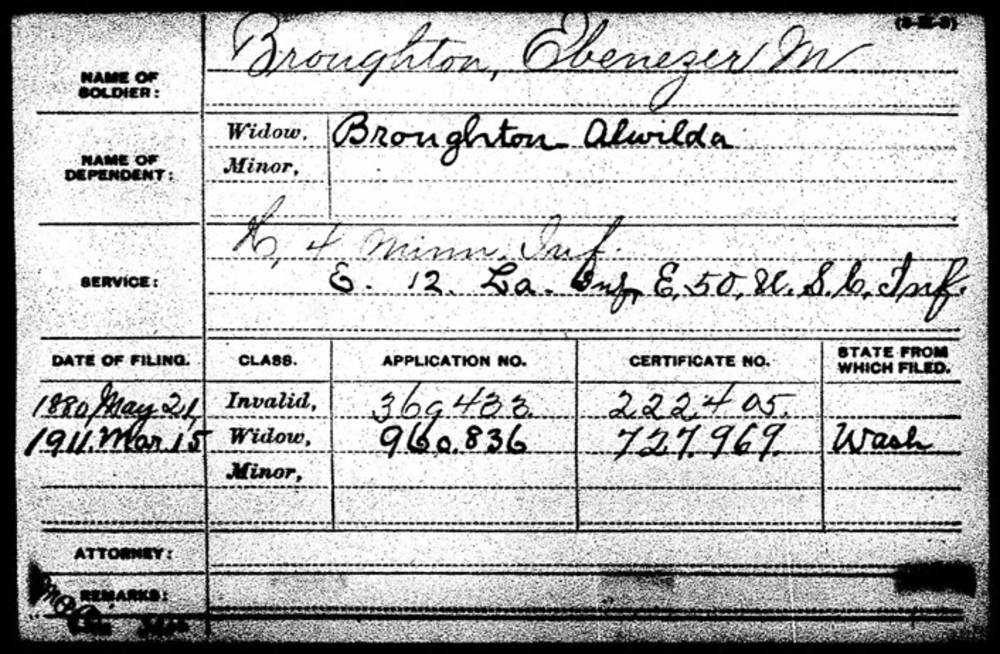 (3-_-3)
Broughton, Ebenezer M
NAME OF
SOLDIER:
Widow, Broughton Alwilda
NAME OF
DEPENDENT:
Minor,
4 Minn. Inf.
SERVICE:
E. 12. La. Inf, E, 50, U. S. C, Inf.
DATE OF FILING. CLASS. APPLICATION NO. CERTIFICATE NO. STATE FROM
WHICH FILED.
1880 May 21, Invalid, 369433. 222405.
1911. Mar. 15 Widow, 960.836 727.969. Wash
Minor,
ATTORNEY:
REMARKS: